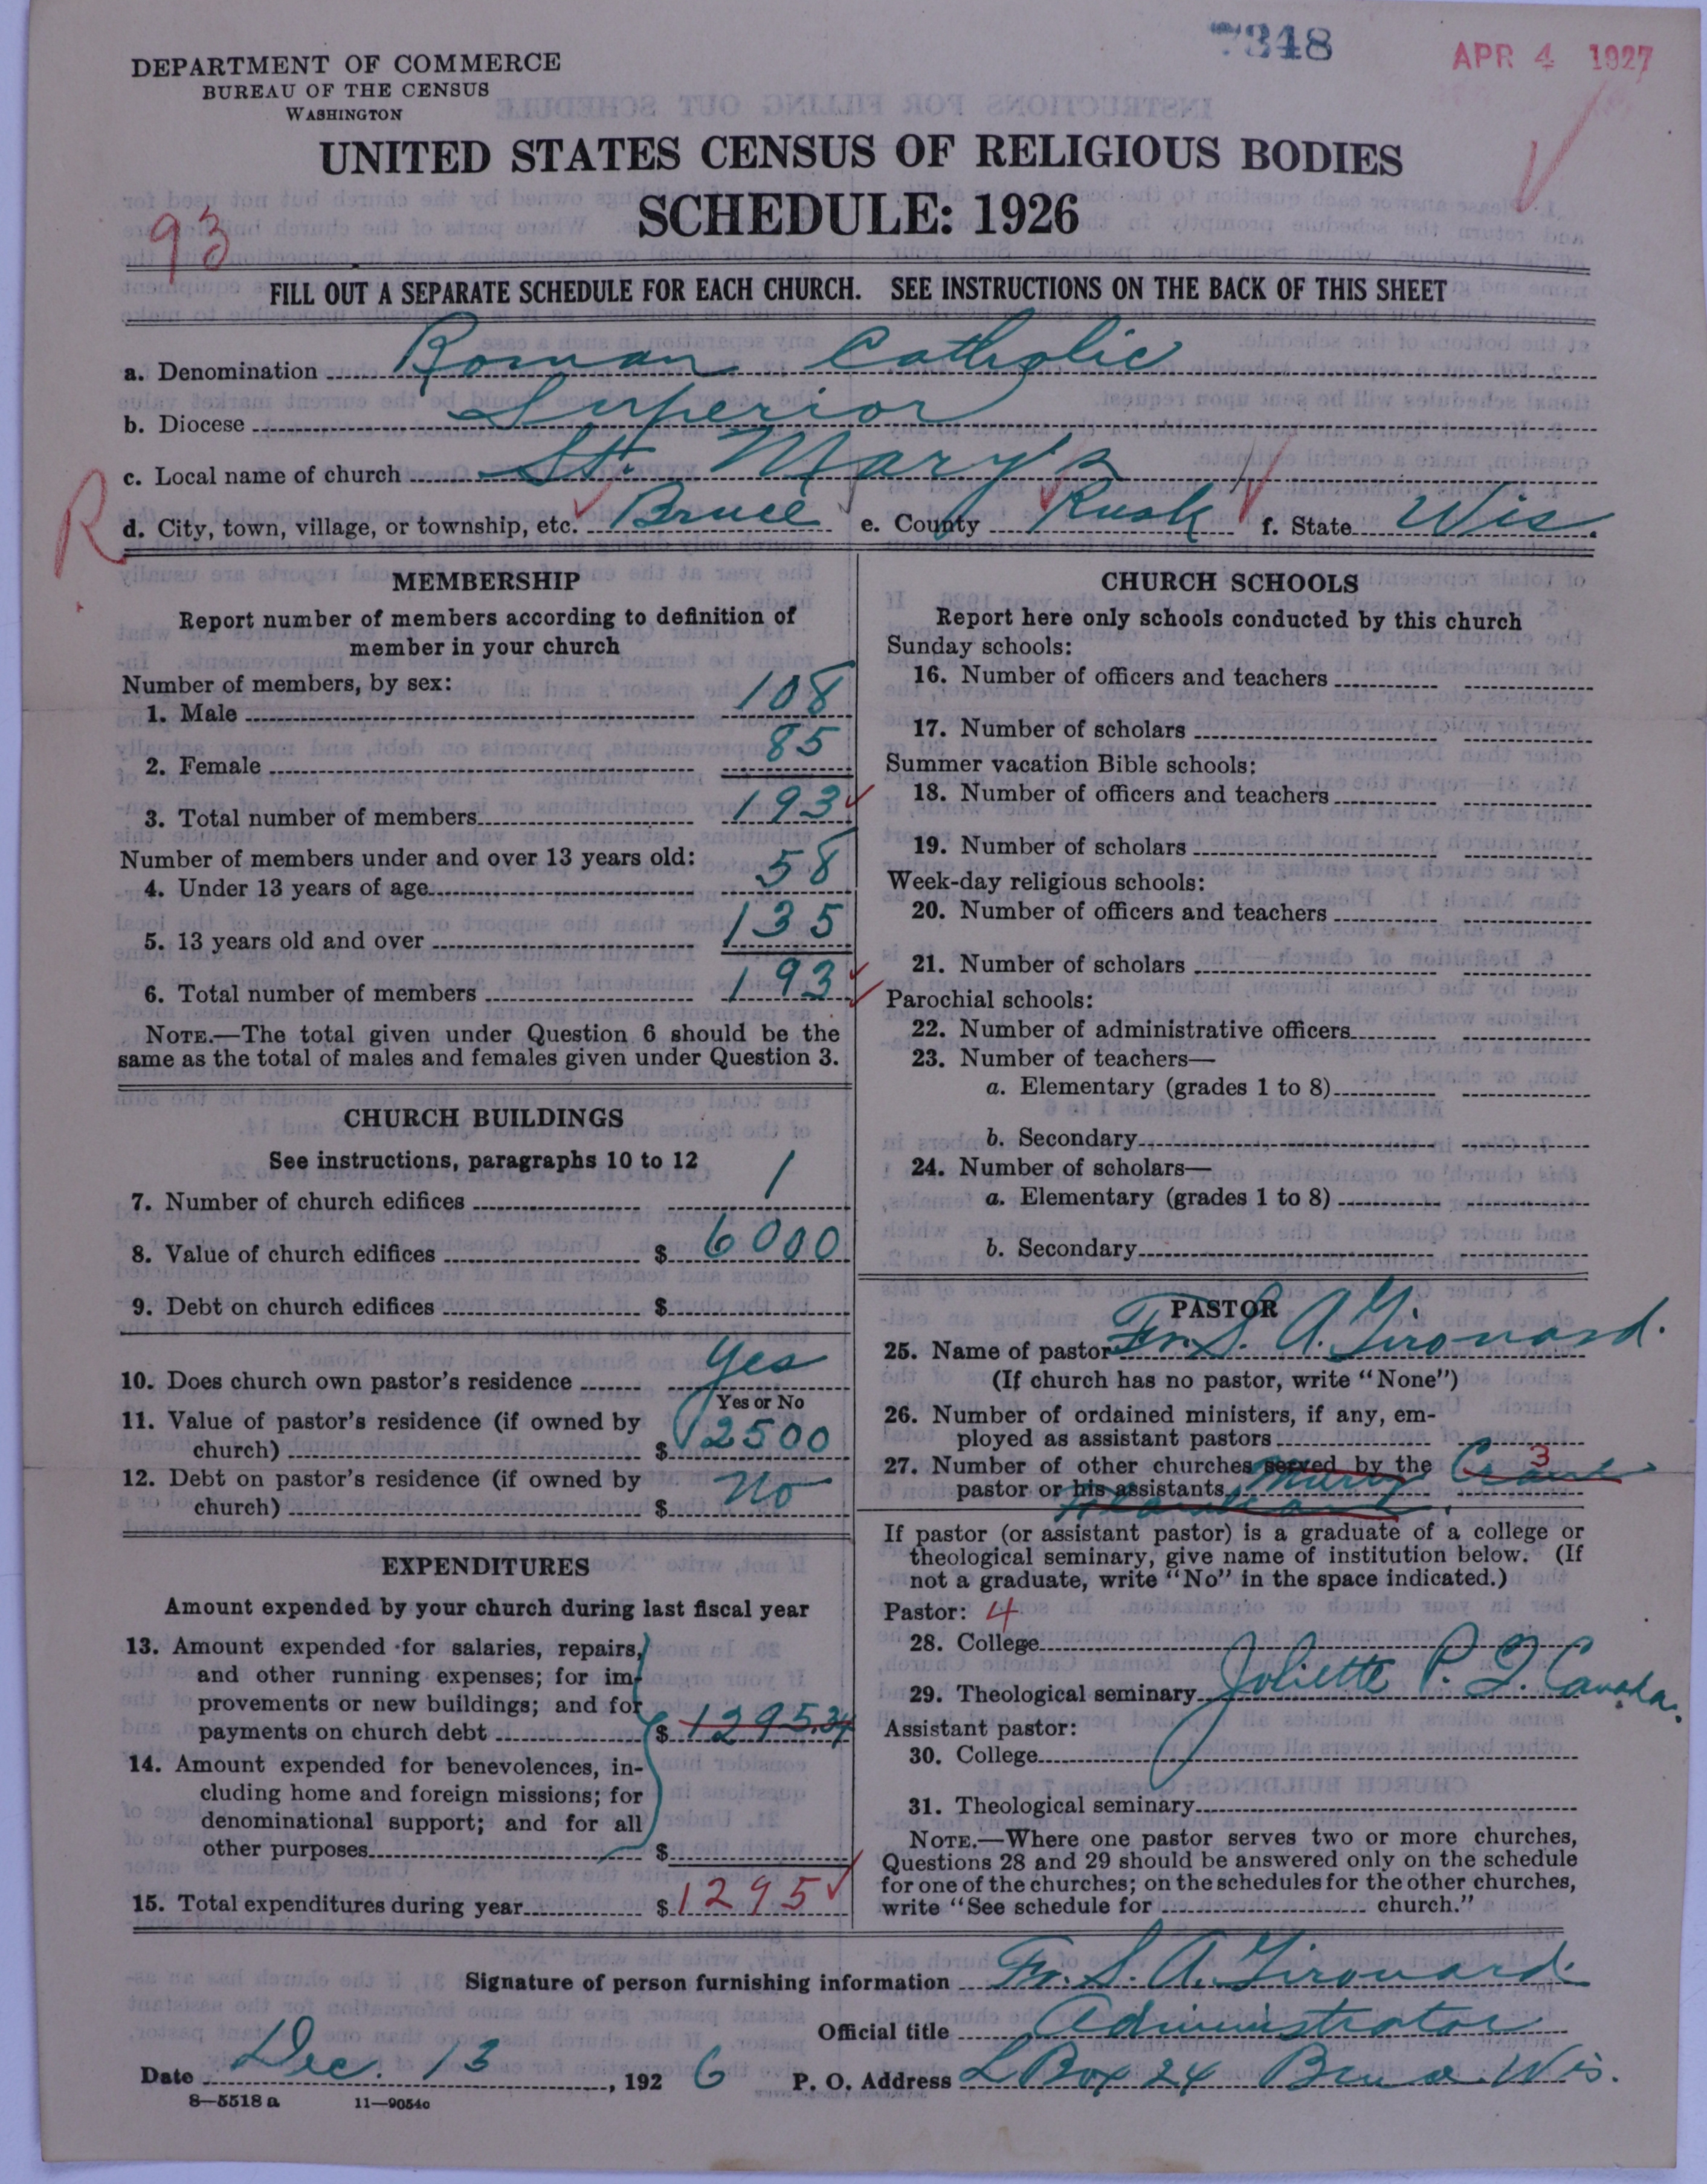 7348
APR 4 1927
DEPARTMENT OF COMMERCE
BUREAU OF THE CENSUS
WASHINGTON
UNITED STATES CENSUS OF RELIGIOUS BODIES
SCHEDULE: 1926
93
FILL OUT A SEPARATE SCHEDULE FOR EACH CHURCH. SEE INSTRUCTIONS ON THE BACK OF THIS SHEET
a. Denomination Roman Catholic
b. Diocese Superior
c. Local name of church St. Mary's
R
d. City, town, village, or township, etc. Bruce e. County Rusk f. State Wis.
MEMBERSHIP
Report number of members according to definition of
member in your church
Number of members, by sex:
1. Male 108
2. Female 85
3. Total number of members 193
Number of members under and over 13 years old:
4. Under 13 years of age 58
5. 13 years old and over 135
6. Total number of members 193
NOTE.—The total given under Question 6 should be the
same as the total of males and females given under Question 3.
CHURCH BUILDINGS
See instructions, paragraphs 10 to 12
7. Number of church edifices 1
8. Value of church edifices $ 6000
9. Debt on church edifices $
10. Does church own pastor's residence Yes
Yes or No
11. Value of pastor's residence (if owned by
church) $ 2500
12. Debt on pastor's residence (if owned by
church) $ No
EXPENDITURES
Amount expended by your church during last fiscal year
13. Amount expended for salaries, repairs,
and other running expenses; for im-
provements or new buildings; and for
payments on church debt $ 1295.34
14. Amount expended for benevolences, in-
cluding home and foreign missions; for
denominational support; and for all
other purposes $
15. Total expenditures during year $ 1295
CHURCH SCHOOLS
Report here only schools conducted by this church
Sunday schools:
16. Number of officers and teachers
17. Number of scholars
Summer vacation Bible schools:
18. Number of officers and teachers
19. Number of scholars
Week-day religious schools:
20. Number of officers and teachers
21. Number of scholars
Parochial schools:
22. Number of administrative officers
23. Number of teachers—
a. Elementary (grades 1 to 8)
b. Secondary
24. Number of scholars—
a. Elementary (grades 1 to 8)
b. Secondary
PASTOR
25. Name of pastor Fr. S. A. Girouard.
(If church has no pastor, write "None")
26. Number of ordained ministers, if any, em-
ployed as assistant pastors
27. Number of other churches served by the 3
pastor or his assistants
If pastor (or assistant pastor) is a graduate of a college or
theological seminary, give name of institution below. (If
not a graduate, write "No" in the space indicated.)
Pastor: 4
28. College
29. Theological seminary Joliette P. Q. Canada.
Assistant pastor:
30. College
31. Theological seminary
NOTE.—Where one pastor serves two or more churches,
Questions 28 and 29 should be answered only on the schedule
for one of the churches; on the schedules for the other churches,
write "See schedule for church."
Signature of person furnishing information Fr. S. A. Girouard.
Official title Administrator
Date Dec. 13, 1926 P. O. Address L Box 24 Bruce Wis.
8—5518 a 11—9054c